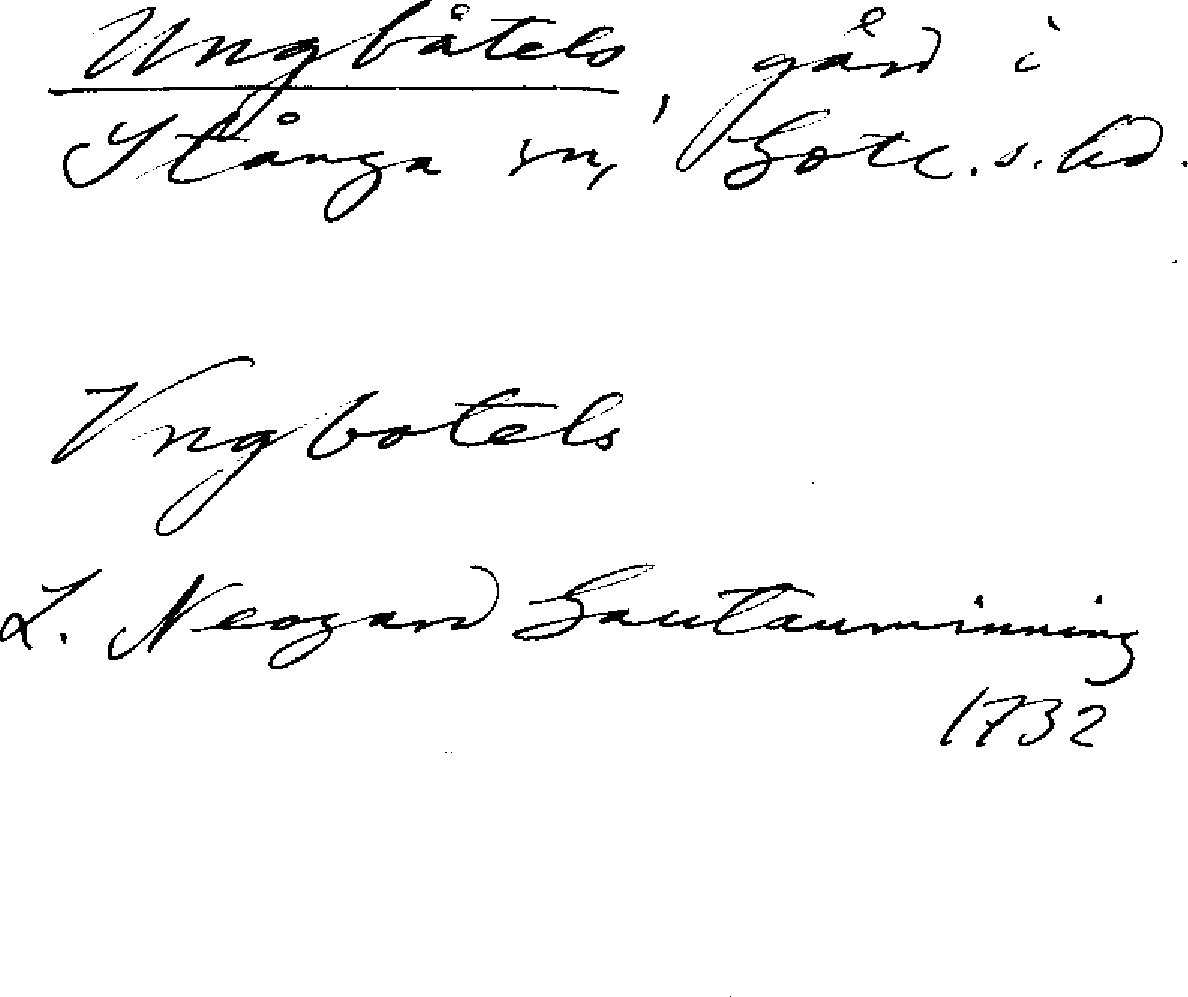 Ungbåtels, gård i
Stånga sn, Gotl. s. hd.
Vngbotels
L. Neogard Gautauminning
1732